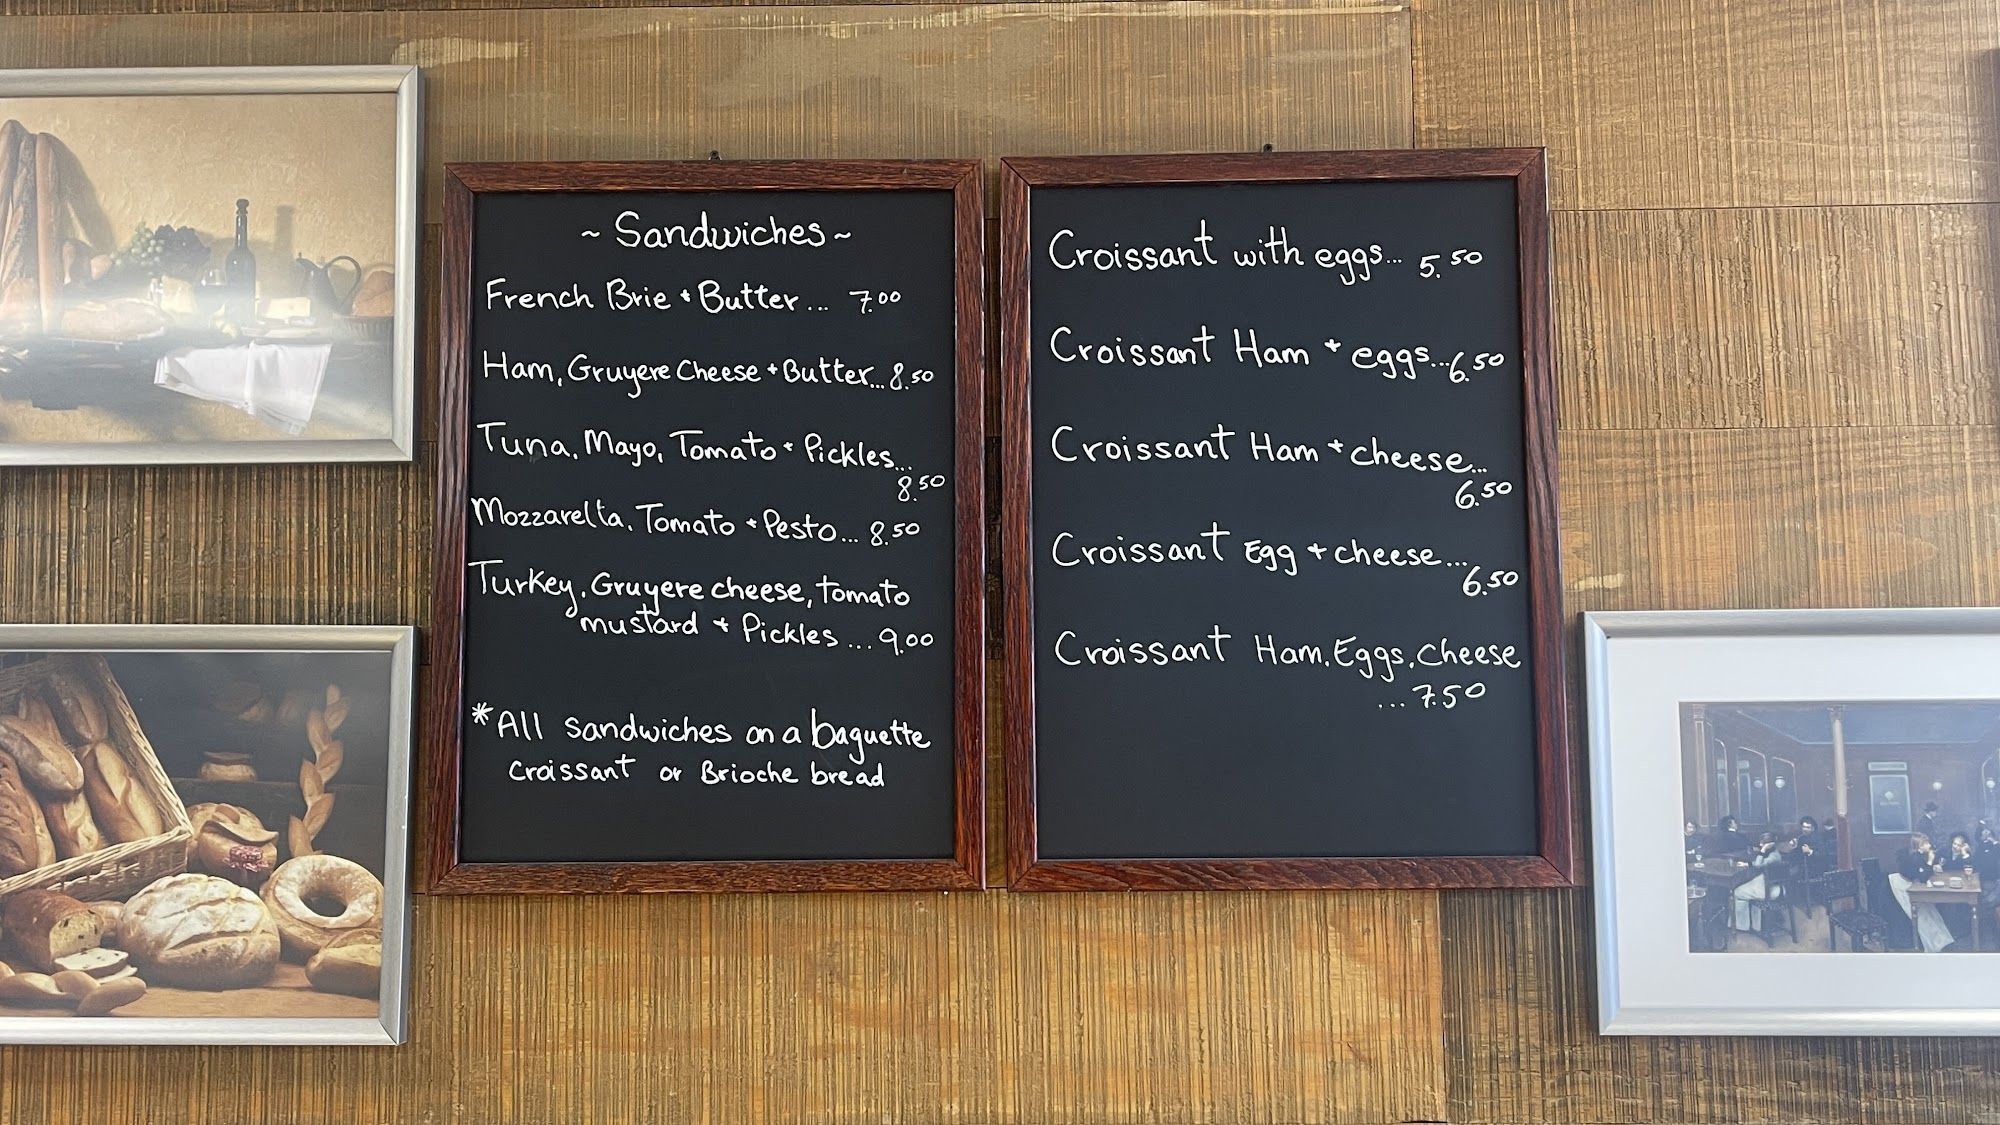 ~ Sandwiches ~
French Brie + Butter... 7.00
Ham, Gruyere Cheese + Butter... 8.50
Tuna, Mayo, Tomato + Pickles...
8.50
Mozzarella, Tomato + Pesto... 8.50
Turkey, Gruyere cheese, tomato
mustard + Pickles ... 9.00
*All sandwiches on a baguette
croissant or Brioche bread
Croissant with eggs... 5.50
Croissant Ham + eggs...6.50
Croissant Ham + cheese...
6.50
Croissant Egg + cheese...
6.50
Croissant Ham, Eggs, Cheese
... 7.50